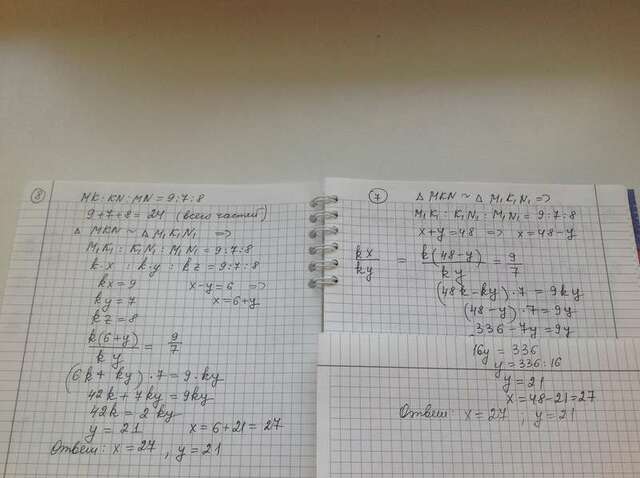 8
MK : KN : MN = 9 : 7 : 8
9 + 7 + 8 = 24 (всех частей)
Δ MKN ~ Δ M₁K₁N₁ =>
M₁K₁ : K₁N₁ : M₁N₁ = 9 : 7 : 8
k·x : k·y : kz = 9 : 7 : 8
kx = 9 x - y = 6 =>
ky = 7 x = 6 + y
kz = 8
k(6+y) / ky = 9/7
(6k + ky) · 7 = 9 · ky
42k + 7ky = 9ky
42k = 2ky
y = 21 x = 6 + 21 = 27
Ответ: x = 27, y = 21
7
Δ MKN ~ Δ M₁K₁N₁ =>
M₁K₁ : K₁N₁ : M₁N₁ = 9 : 7 : 8
x + y = 48 => x = 48 - y
kx / ky = k(48-y) / ky = 9/7
(48k - ky) · 7 = 9ky
(48 - y) · 7 = 9y
336 - 7y = 9y
16y = 336
y = 336 : 16
y = 21
x = 48 - 21 = 27
Ответ: x = 27, y = 21